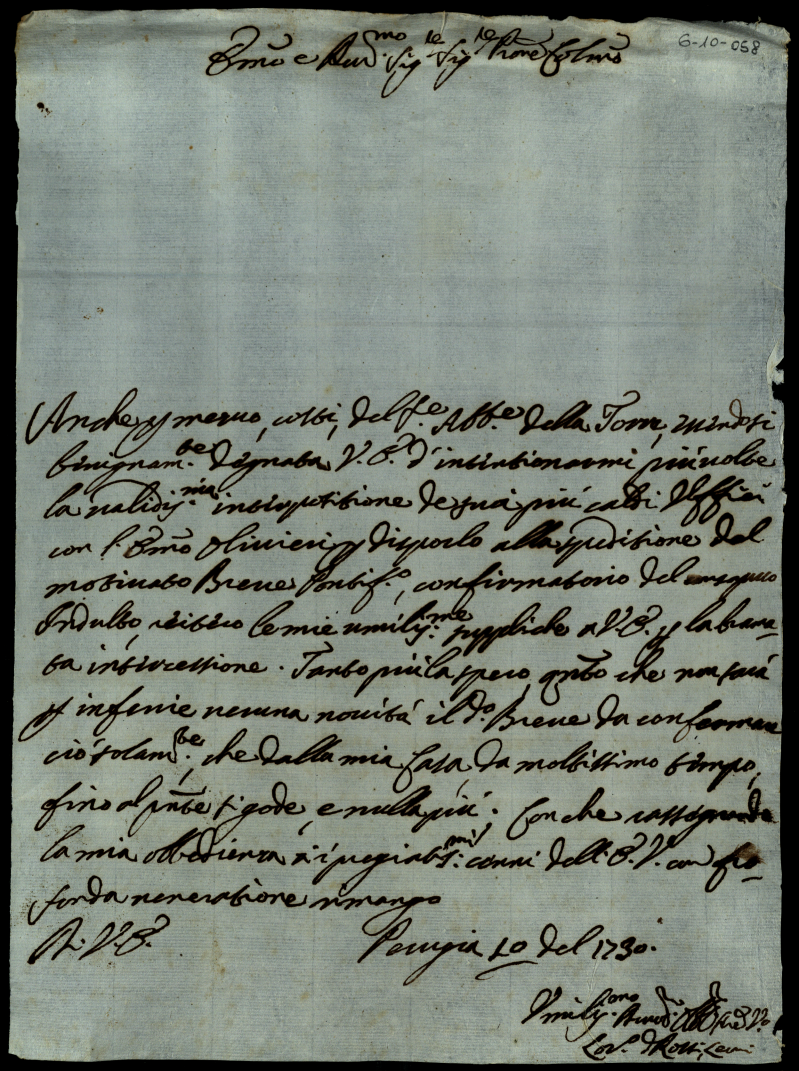 6-10-058
Emo e Rev.mo Sig.re Sig.re Pnōe Colmo
Anche p mezzo, costì, del Sr.e Abb.e della Torre, essendosi
benignam.te degnata V.E. d'intentionarmi più volte
la validiss.ma interpositione de suoi più caldi Uffici
con l'Emo Olivieri p disporlo alla speditione del
motivato Breve Pontif.o, confirmatorio del
Indulto, reitero le mie umiliss.me suppliche a V.E. p la brama-
ta intercessione. Tanto più la spero, qnto che non sarà
p inferire nessuna novità il d.o Breve da confermare
ciò solam.te, che dalla mia Casa, da moltissimo tempo,
fino al pnte si gode, e nulla più. Con che rassegnando
la mia obbedienza a i pregiatiss.mi cenni dell'E.V. con pro-
fonda veneratione rimango
Di V.E.
Perugia 10 del 1730.
Umiliss.mo Devot. Obb.